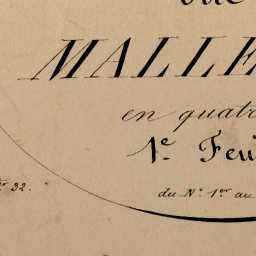 MALLE
en quatr
1.e Feui
du N.o 1.er au
32.